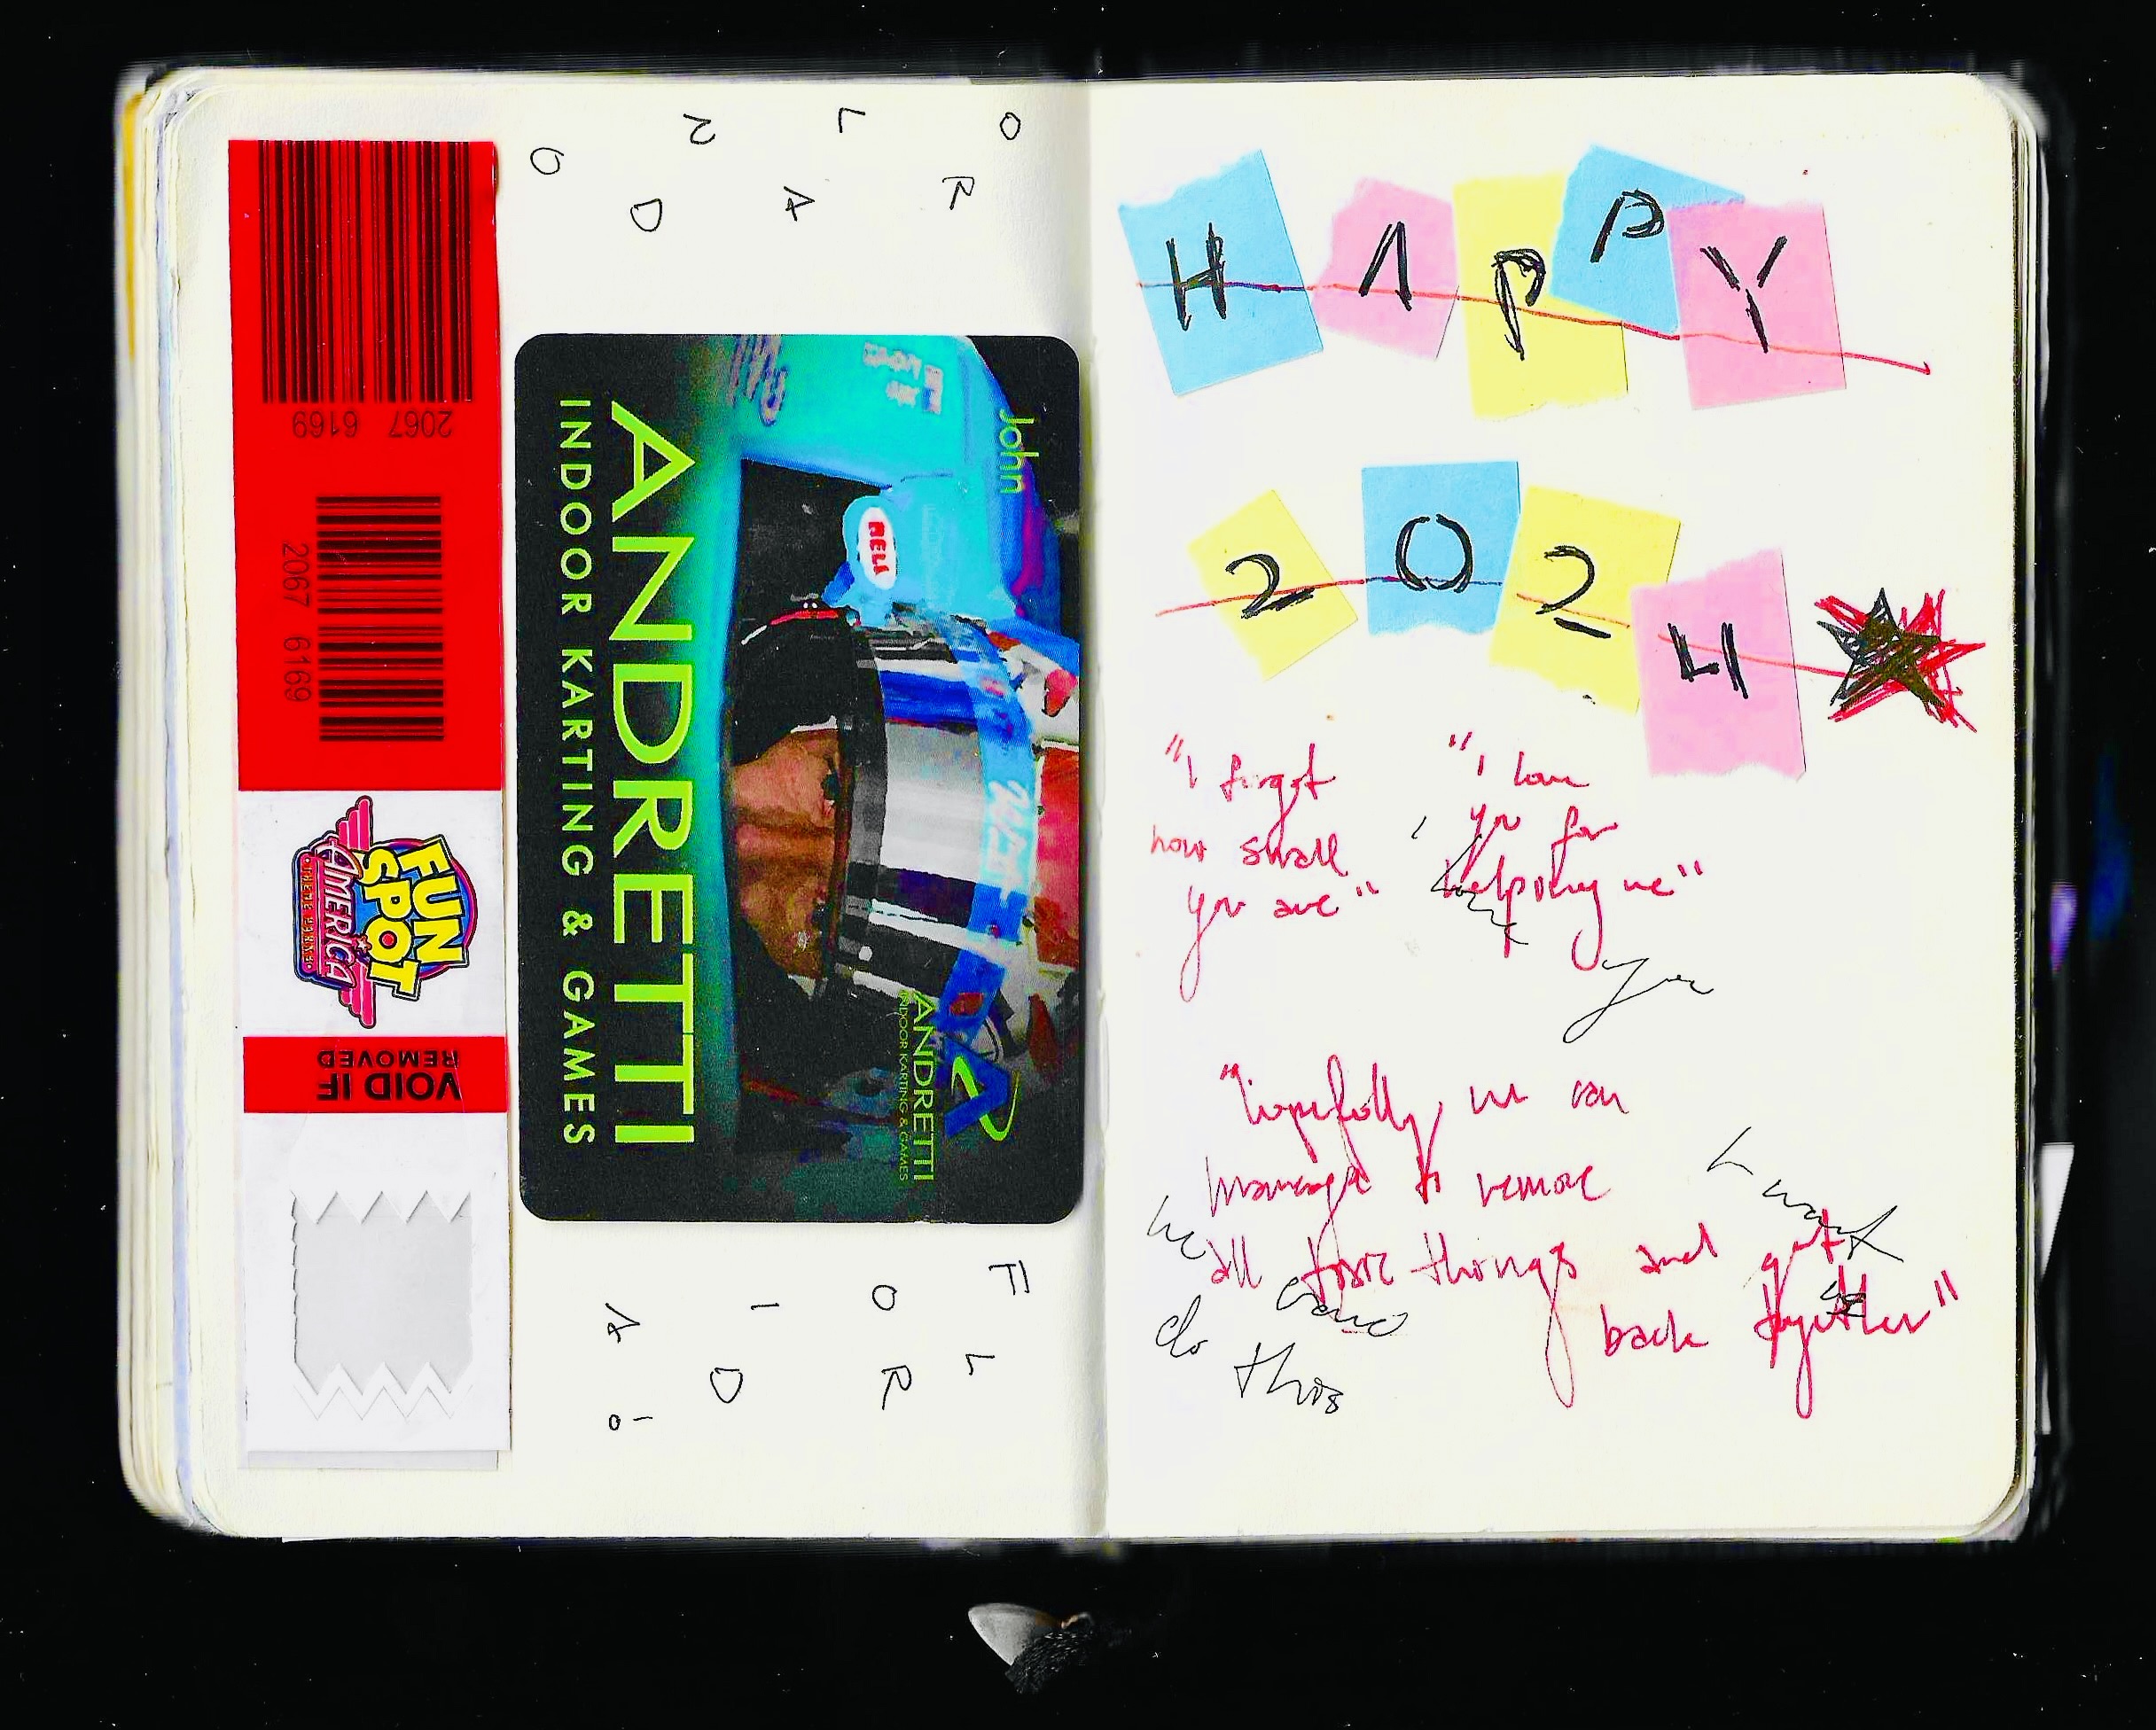 O R L A N D O
2067 6169
2067 6169
FUN
SPOT
AMERICA
VOID IF
REMOVED
John
BELL
ANDRETTI
INDOOR KARTING & GAMES
ANDRETTI
INDOOR KARTING & GAMES
F L O R I D A
:o
HAPPY
2024
"I forgot
how small
you are"
"I love
you for
helping me"
I
love
you
"hopefully, we can
manage to remove
all those things and get
back together"
I want
us
we
do
this